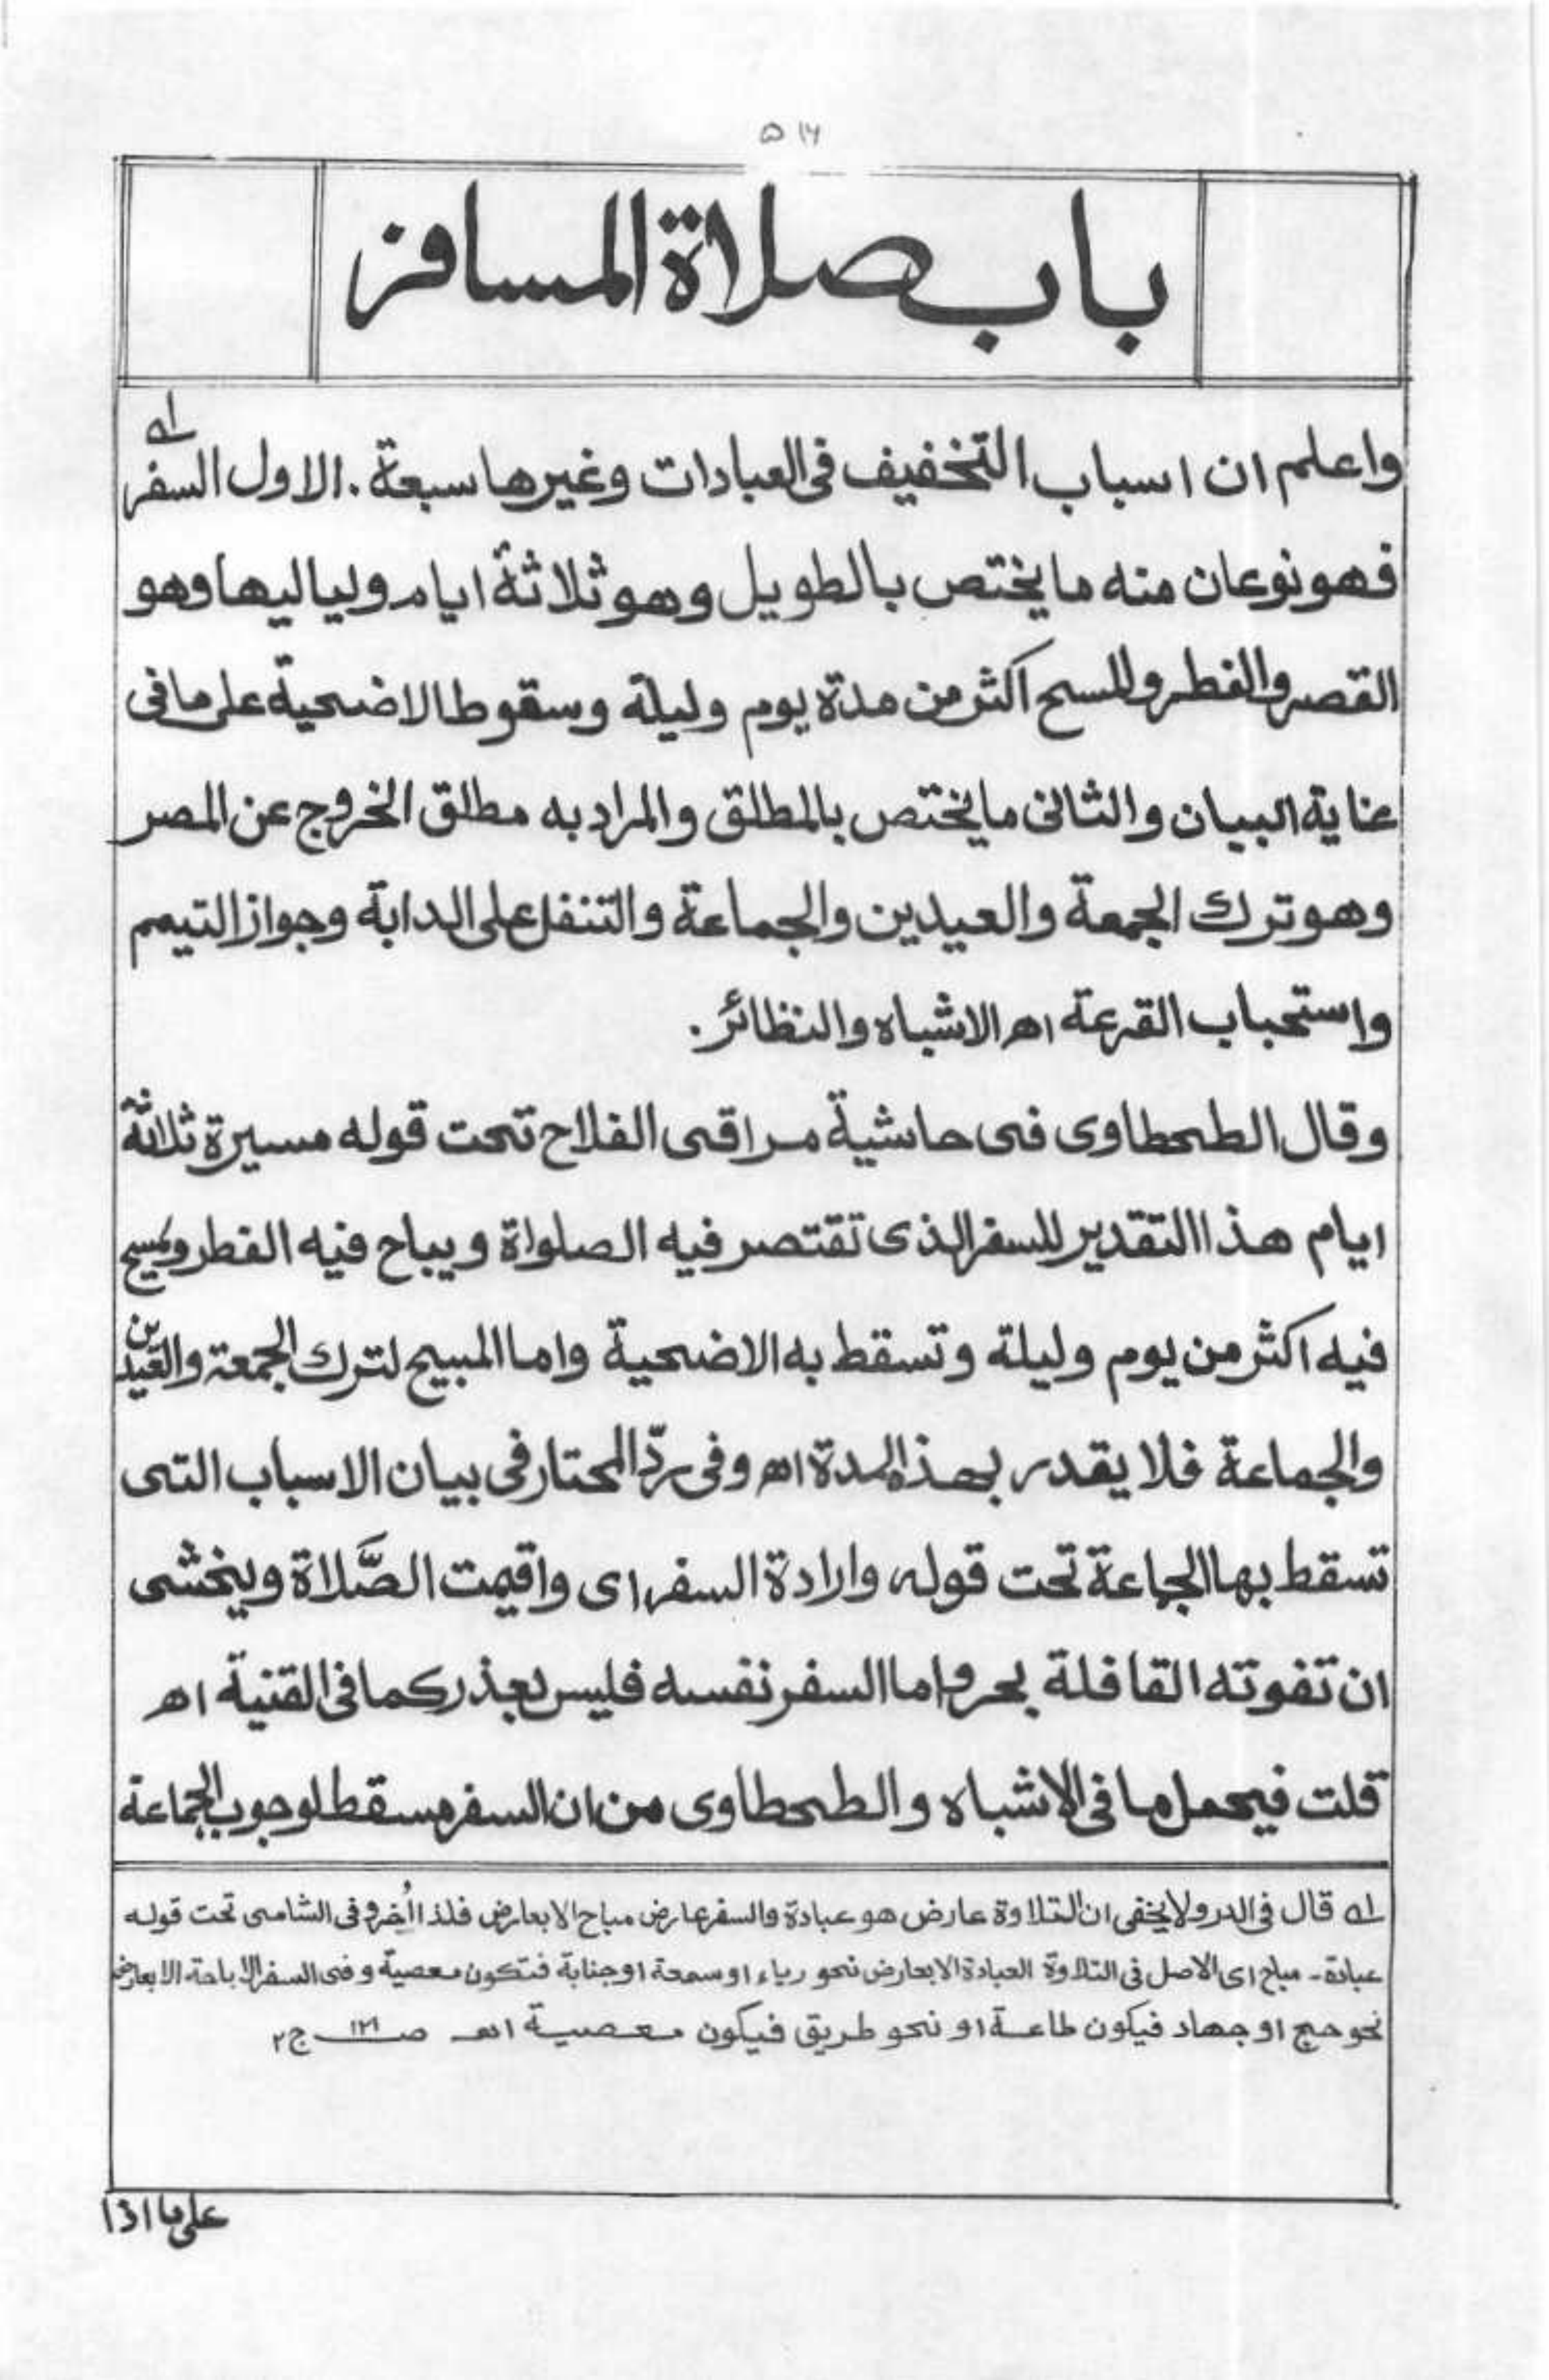 ۵۱۶
باب صلاة المسافر
واعلم ان اسباب التخفيف فى العبادات وغيرها سبعة . الاول السفر له
فهو نوعان منه ما يختص بالطويل وهو ثلاثة ايام ولياليها وهو
القصر والفطر والمسح اكثر من مدة يوم وليلة وسقوط الاضحية على ما فى
عناية البيان والثانى ما يختص بالمطلق والمراد به مطلق الخروج عن المصر
وهو ترك الجمعة والعيدين والجماعة والتنفل على الدابة وجواز التيمم
واستحباب القرعة اه الاشباه والنظائر .
وقال الطحطاوى فى حاشية مراقى الفلاح تحت قوله مسيرة ثلاثة
ايام هذا التقدير للسفر الذى تقتصر فيه الصلواة ويباح فيه الفطر ويمسح
فيه اكثر من يوم وليلة وتسقط به الاضحية واما المبيح لترك الجمعة والعيدين
والجماعة فلا يقدر بهذه المدة اه وفى ردّ المحتار فى بيان الاسباب التى
تسقط بها الجماعة تحت قوله وارادة السفر اى واقيمت الصَّلاة ويخشى
ان تفوته القافلة بحر واما السفر نفسه فليس بعذر كما فى القنية اه
قلت فيحمل ما فى الاشباه والطحطاوى من ان السفر مسقط لوجوب الجماعة
له قال فى الدر ولا يخفى ان التلاوة عارض هو عبادة والسفر عارض مباح الا بعارض فلذا اُخر وفى الشامى تحت قوله
عبادة - مباح اى الاصل فى التلاوة العبادة الا بعارض نحو رياء او سمعة او جنابة فتكون معصية وفى السفر الاباحة الا بعارض
نحو حج او جهاد فيكون طاعة او نحو طريق فيكون معصية اه ص ۱۲۱ ج ۲
على ما اذا